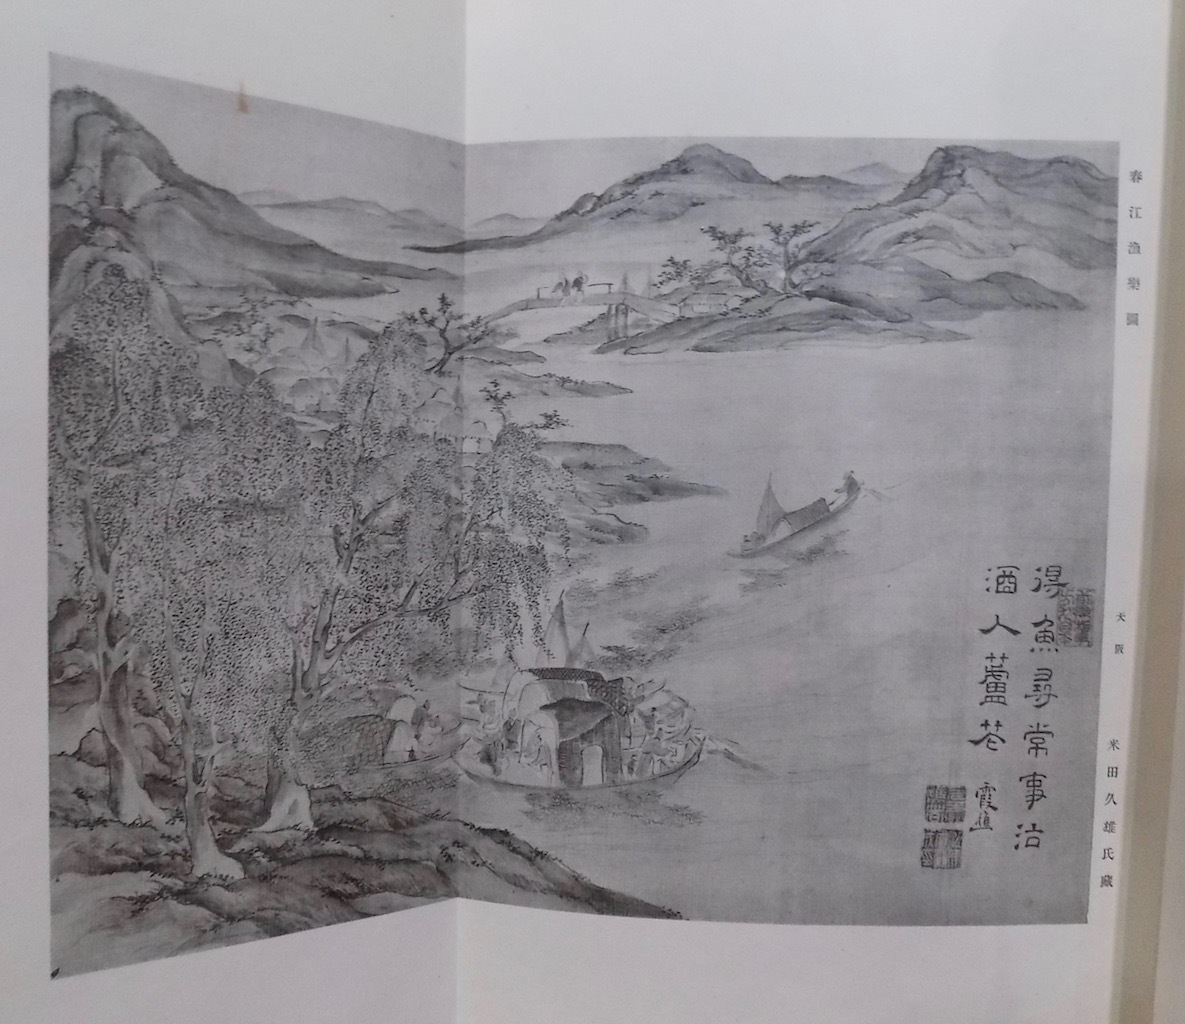 春江漁樂圖
大阪 米田久雄氏藏
得魚尋常事沽
酒人蘆花
霞樵